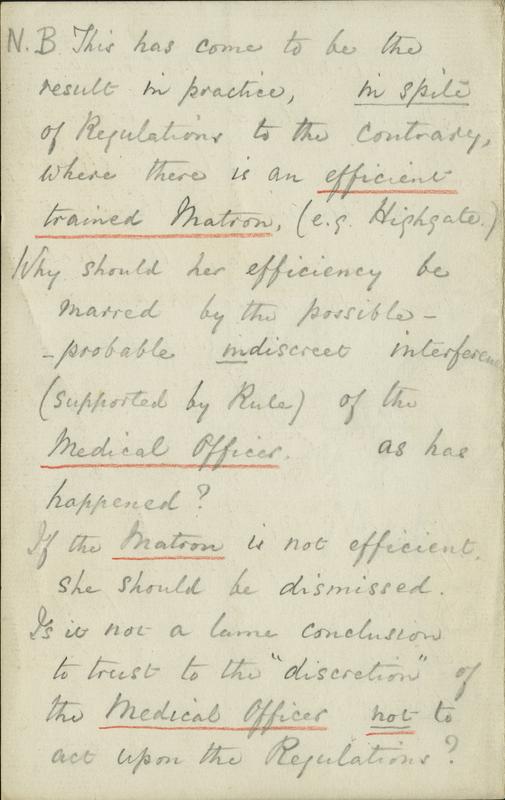 N.B This has come to be the
result in practice, in spite
of Regulations to the contrary,
where there is an efficient
trained Matron, (e.g. Highgate.)
Why should her efficiency be
marred by the possible -
- probable indiscreet interference
(supported by Rule) of the
Medical Officer. as has
happened?
If the Matron is not efficient.
she should be dismissed.
Is it not a lame conclusion
to trust to the "discretion" of
the Medical Officer not to
act upon the Regulations?